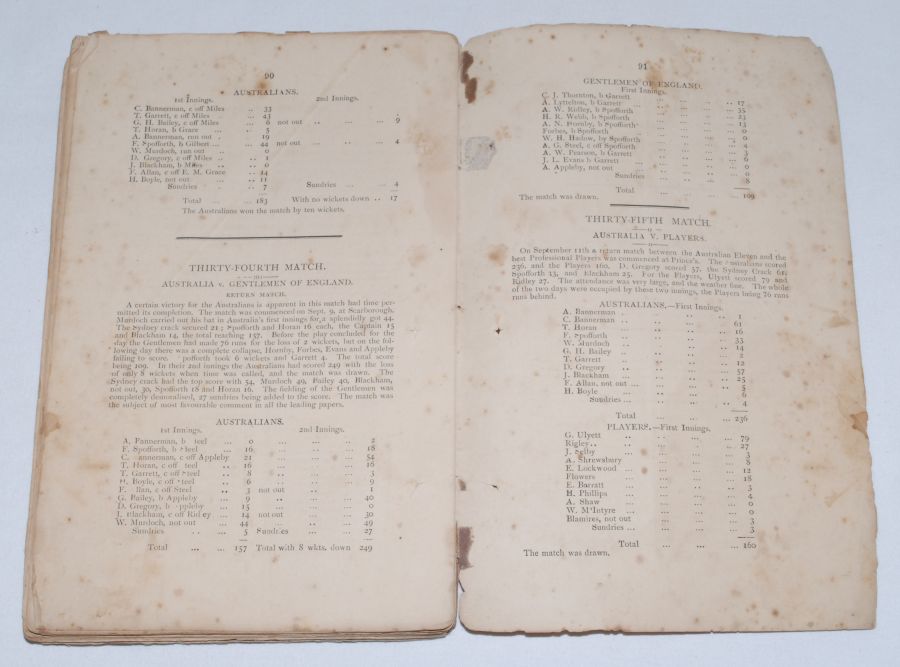 90
AUSTRALIANS.
1st Innings. 2nd Innings.
C. Bannerman, c off Miles .. 33
T. Garrett, c off Miles ... 43
G. H. Bailey, c off Miles 6 not out .. ... ... 9
T. Horan, b Grace ... 5
A. Bannerman, run out . 19
F. Spofforth, b Gilbert ... 44 not out ... .. ... 4
W. Murdoch, run out .. 0
D. Gregory, c off Miles .. 1
J. Blackham, b Miles .. 0
F. Allan, c off E. M. Grace .. 14
H. Boyle, not out .. 11
Sundries .. 7 Sundries ... ... 4
Total ... ... 183 With no wickets down .. 17
The Australians won the match by ten wickets.
THIRTY-FOURTH MATCH.
AUSTRALIA v. GENTLEMEN OF ENGLAND.
RETURN MATCH.
A certain victory for the Australians is apparent in this match had time per-
mitted its completion. The match was commenced on Sept. 9, at Scarborough.
Murdoch carried out his bat in Australia's first innings for a splendidly got 44.
The Sydney crack secured 21; Spofforth and Horan 16 each, the Captain 15
and Blackham 14, the total reaching 157. Before the play concluded for the
day the Gentlemen had made 76 runs for the loss of 2 wickets, but on the fol-
lowing day there was a complete collapse, Hornby, Forbes, Evans and Appleby
failing to score. pofforth took 6 wickets and Garrett 4. The total score
being 109. In their 2nd innings the Australians had scored 249 with the loss
of only 8 wickets when time was called, and the match was drawn. The
Sydney crack had the top score with 54, Murdoch 49, Bailey 40, Blackham,
not out, 30, Spofforth 18 and Horan 16. The fielding of the Gentlemen was
completely demoralised, 27 sundries being added to the score. The match was
the subject of most favourable comment in all the leading papers.
AUSTRALIANS.
1st Innings. 2nd Innings.
A. Bannerman, b teel ... 0 ... ... ... 2
F. Spofforth, b Steel ... 16 ... ... ... 18
C. annerman, c off Appleby 21 ... ... ... 54
T. Horan, c off teel .. 16 ... ... ... 16
T. Garrett, c off Steel .. 8 ... ... ... 5
H. Boyle, c off Steel .. 6 ... ... ... 9
F. llan, c off Steel .. 3 not out ... ... 1
G. Bailey, b Appleby ... 9 .. ... ... 40
D. Gregory, b Appleby ... 15 ... ... ... 0
J. Blackham, c off Ridley .. 14 not out ... ... 30
W. Murdoch, not out ... 44 ... .. ... 49
Sundries .. ... 5 Sundries ... 27
Total ... ... 157 Total with 8 wkts. down 249
91
GENTLEMEN OF ENGLAND.
First Innings.
C. J. Thornton, b Garrett
A. Lyttelton, b Garrett ... ... ... ... 17
A. W. Ridley, b Spofforth ... ... ... 35
H. R. Webb, b Spofforth ... ... ... 23
A. N. Hornby, b Spofforth ... ... ... 13
Forbes, b Spofforth ... ... ... 0
W. H. Hadow, by Spofforth ... ... 0
A. G. Steel, c off Spofforth ... ... 4
A. W. Pearson, b Garrett ... ... 3
J. L. Evans b Garrett ... ... ... 6
A. Appleby, not out ... ... ... 0
Sundries ... ... 8
Total ... ... ... 109
The match was drawn.
THIRTY-FIFTH MATCH.
AUSTRALIA V. PLAYERS.
On September 11th a return match between the Australian Eleven and the
best Professional Players was commenced at Prince's. The Australians scored
236, and the Players 160. D. Gregory scored 57, the Sydney Crack 61,
Spofforth 13, and Blackham 25. For the Players, Ulyett scored 79 and
Ridley 27. The attendance was very large, and the weather fine. The whole
of the two days were occupied by these two innings, the Players being 76 runs
runs behind.
AUSTRALIANS.—First Innings.
A. Bannerman ... ... ... ... 1
C. Bannerman .. ... ... ... 61
T. Horan ... ... ... ... 16
F. Spofforth ... ... ... ... 33
W. Murdoch ... ... ... ... 14
G. H. Bailey .. ... ... ... 2
T. Garrett ... ... ... ... 12
D. Gregory .. ... ... ... 57
J. Blackham ... ... ... ... 25
F. Allan, not out ... ... ... ... 5
H. Boyle ... ... ... ... 6
Sundries ... ... ... ... 4
Total ... ... ... 236
PLAYERS.—First Innings.
G. Ulyett .. .. ... ... 79
Rigley.. .. .. ... ... 27
J. Selby .. ... ... ... 3
A. Shrewsbury ... ... ... 8
E. Lockwood ... ... ... ... 12
Flowers ... ... ... ... 18
E. Barratt ... ... ... ... 3
H. Phillips ... ... ... ... 4
A. Shaw ... ... ... ... 0
W. M'Intyre ... ... ... ... 0
Blamires, not out ... ... ... 3
Sundries ... ... ... ... 3
Total ... ... ... 160
The match was drawn.